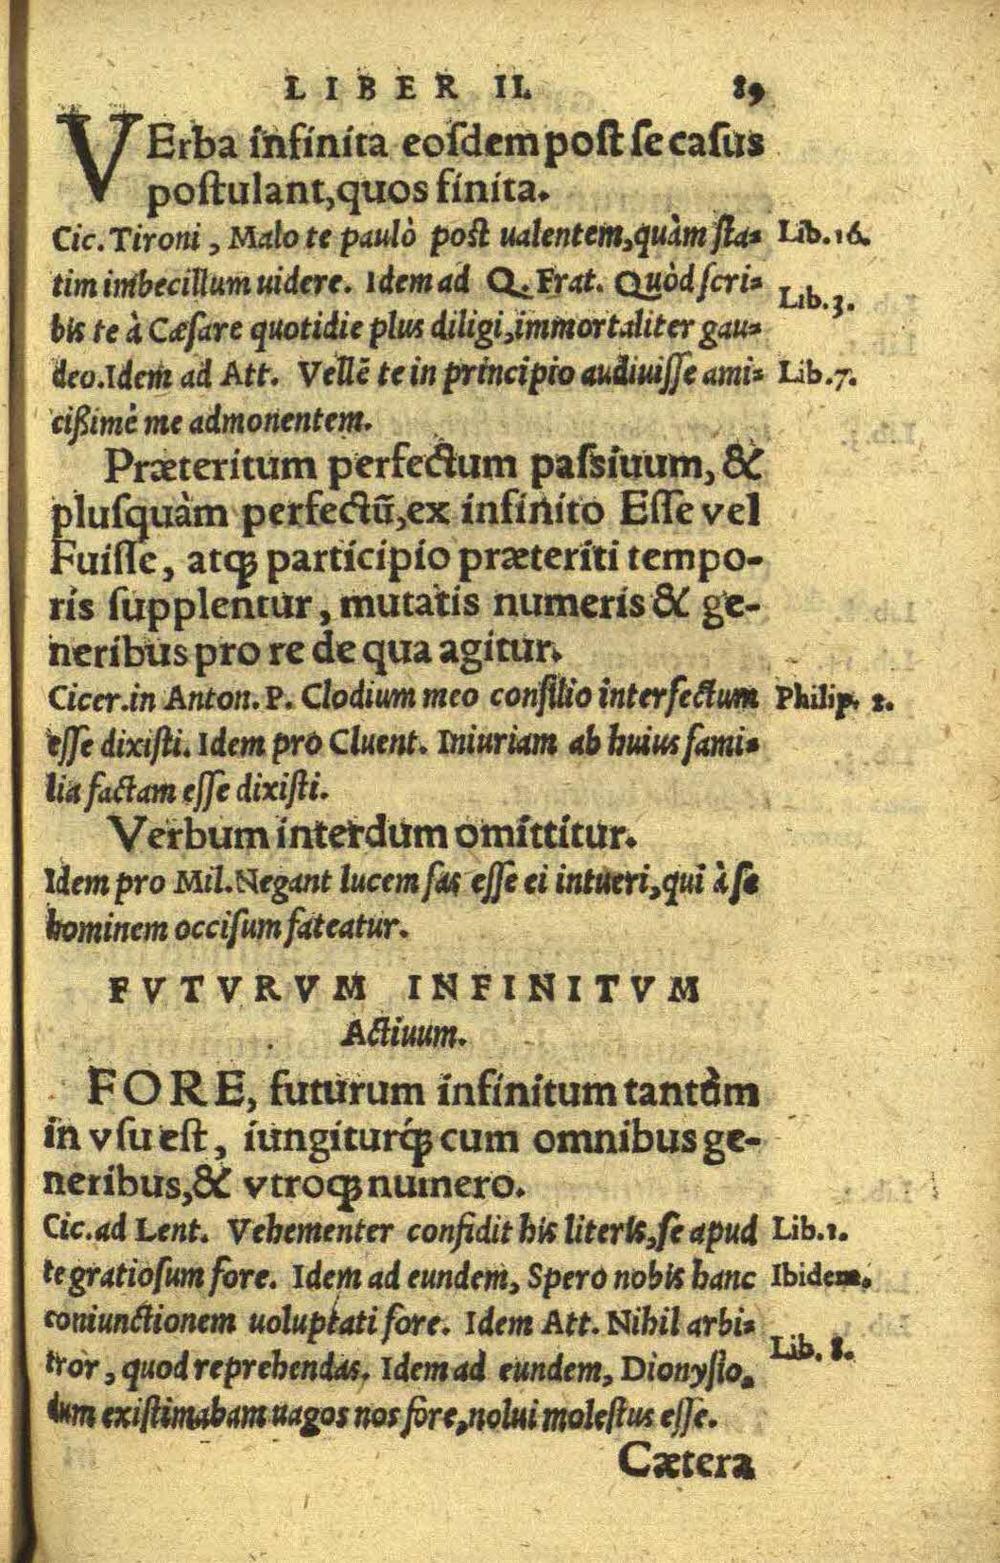 LIBER II. 89
VErba infinita eosdem post se casus
postulant, quos finita.
Cic. Tironi, Malo te paulò post ualentem, quàm sta- Lib.16.
tim imbecillum uidere. Idem ad Q. Frat. Quòd scri-
Lib.3.
bis te à Cæsare quotidie plus diligi, immortaliter gau-
deo. Idem ad Att. Vellẽ te in principio audiuisse ami- Lib.7.
cißimè me admonentem.
Præteritum perfectum passiuum, &
plusquàm perfectũ, ex infinito Esse vel
Fuisse, atq; participio præteriti tempo-
ris supplentur, mutatis numeris & ge-
neribus pro re de qua agitur.
Cicer. in Anton. P. Clodium meo consilio interfectum Philip. 2.
esse dixisti. Idem pro Cluent. Iniuriam ab huius fami-
lia factam esse dixisti.
Verbum interdum omittitur.
Idem pro Mil. Negant lucem fas esse ei intueri, qui à se
hominem occisum fateatur.
FVTVRVM INFINITVM
Actiuum.
FORE, futurum infinitum tantùm
in vsu est, iungiturq́; cum omnibus ge-
neribus, & vtroq; numero.
Cic. ad Lent. Vehementer confidit his literis, se apud Lib.1.
te gratiosum fore. Idem ad eundem, Spero nobis hanc Ibidem.
coniunctionem uoluptati fore. Idem Att. Nihil arbi-
Lib. 8.
tror, quod reprehendas. Idem ad eundem, Dionysio,
dum existimabam uagos nos fore, nolui molestus esse.
Cætera